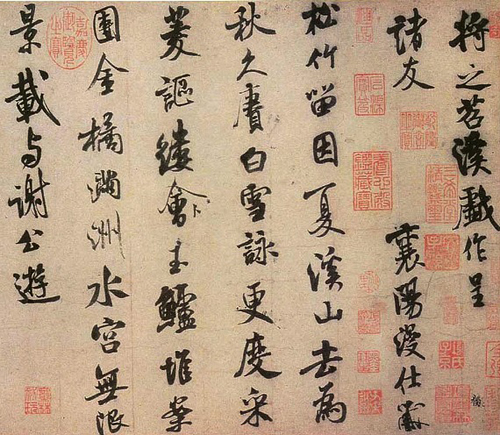 將之苕溪戲作呈
諸友 襄陽漫仕黻
松竹留因夏溪山去為
秋久賡白雪詠更度采
菱謳縷會卜玉鱸堆案
團金橘滿洲水宮無限
景載与謝公遊
嘉慶御覽之寶